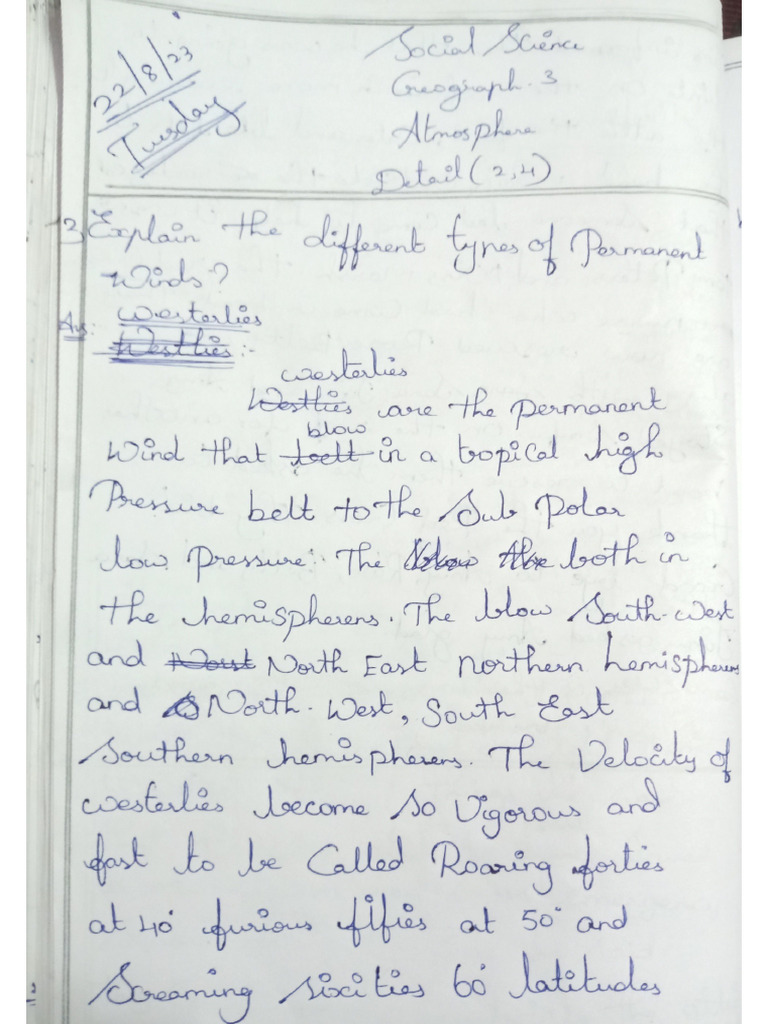 22/8/23
Tuesday
Social Science
Geograph-3
Atmosphere
Detail (2,4)
3 Explain the different types of Permanent
Winds?
westerlies
Ans: Westlies:-
westerlies
Westlies are the permanent
blow
Wind that belt in a tropical high
Pressure belt to the Sub Polar
low pressure. The both in
the hemispherens. The blow South-west
and North East northern hemispherens
and North-West, South East
Southern hemispherens. The Velocity of
westerlies become so Vigorous and
fast to be Called Roaring forties
at 40° furious fifies at 50° and
Screaming sixities 60° latitudes